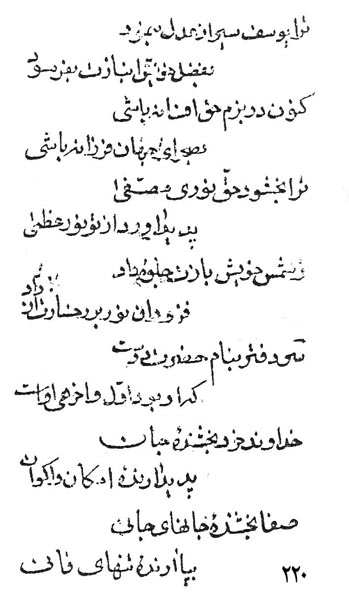 ترا یوسف سیر از عدل بنمود
بفضل حق ترا بازت
کنون در بزم حق افسانه باشی
بصحرای جهان فرزانه باشی
ترا بخشود حق نوری مصفی
پدید آورد از تو نور عظمی
ز شمس خویش بازت جلوه داد
فروزان نور بر رخسارت
دفتر بنام حضرت دوست
که او بود اول و آخر همی اوست
خداوند خرد بخشندهٔ جان
پدید آرندهٔ امکان و اکوان
صفا بخشندهٔ جانهای جانی
بپا آرندهٔ تنهای فانی
۲۲۰